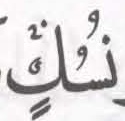 نُسُكٍۚ